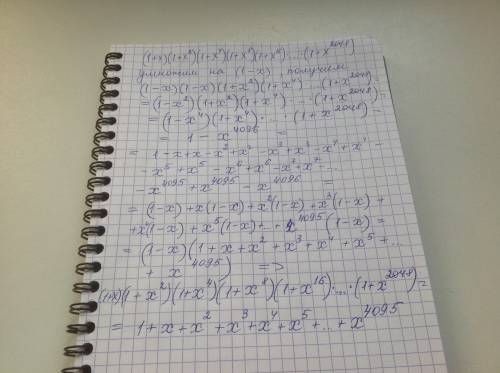 (1+x)(1+x²)(1+x⁴)(1+x⁸)(1+x¹⁶)...(1+x²⁰⁴⁸)
умножим на (1-x), получим
(1-x)(1-x)(1+x²)(1+x⁴)...(1+x²⁰⁴⁸)
=(1-x²)(1+x²)(1+x⁴)...(1+x²⁰⁴⁸)=
=(1-x⁴)(1+x⁴)·...·(1+x²⁰⁴⁸)=
= 1 - x⁴⁰⁹⁶ =
= 1-x+x-x²+x²-x³+x³-x⁴+x⁴-
-x⁵+x⁵-x⁶+x⁶-x⁷+x⁷-...
-x⁴⁰⁹⁵+x⁴⁰⁹⁵-x⁴⁰⁹⁶ =
= (1-x)+x(1-x)+x²(1-x)+x³(1-x)+
+x⁴(1-x)+x⁵(1-x)+...+x⁴⁰⁹⁵(1-x)=
= (1-x)(1+x+x²+x³+x⁴+x⁵+...
+ x⁴⁰⁹⁵) =>
(1+x)(1+x²)(1+x⁴)(1+x⁸)(1+x¹⁶)·...·(1+x²⁰⁴⁸)=
= 1+x+x²+x³+x⁴+x⁵+...+x⁴⁰⁹⁵